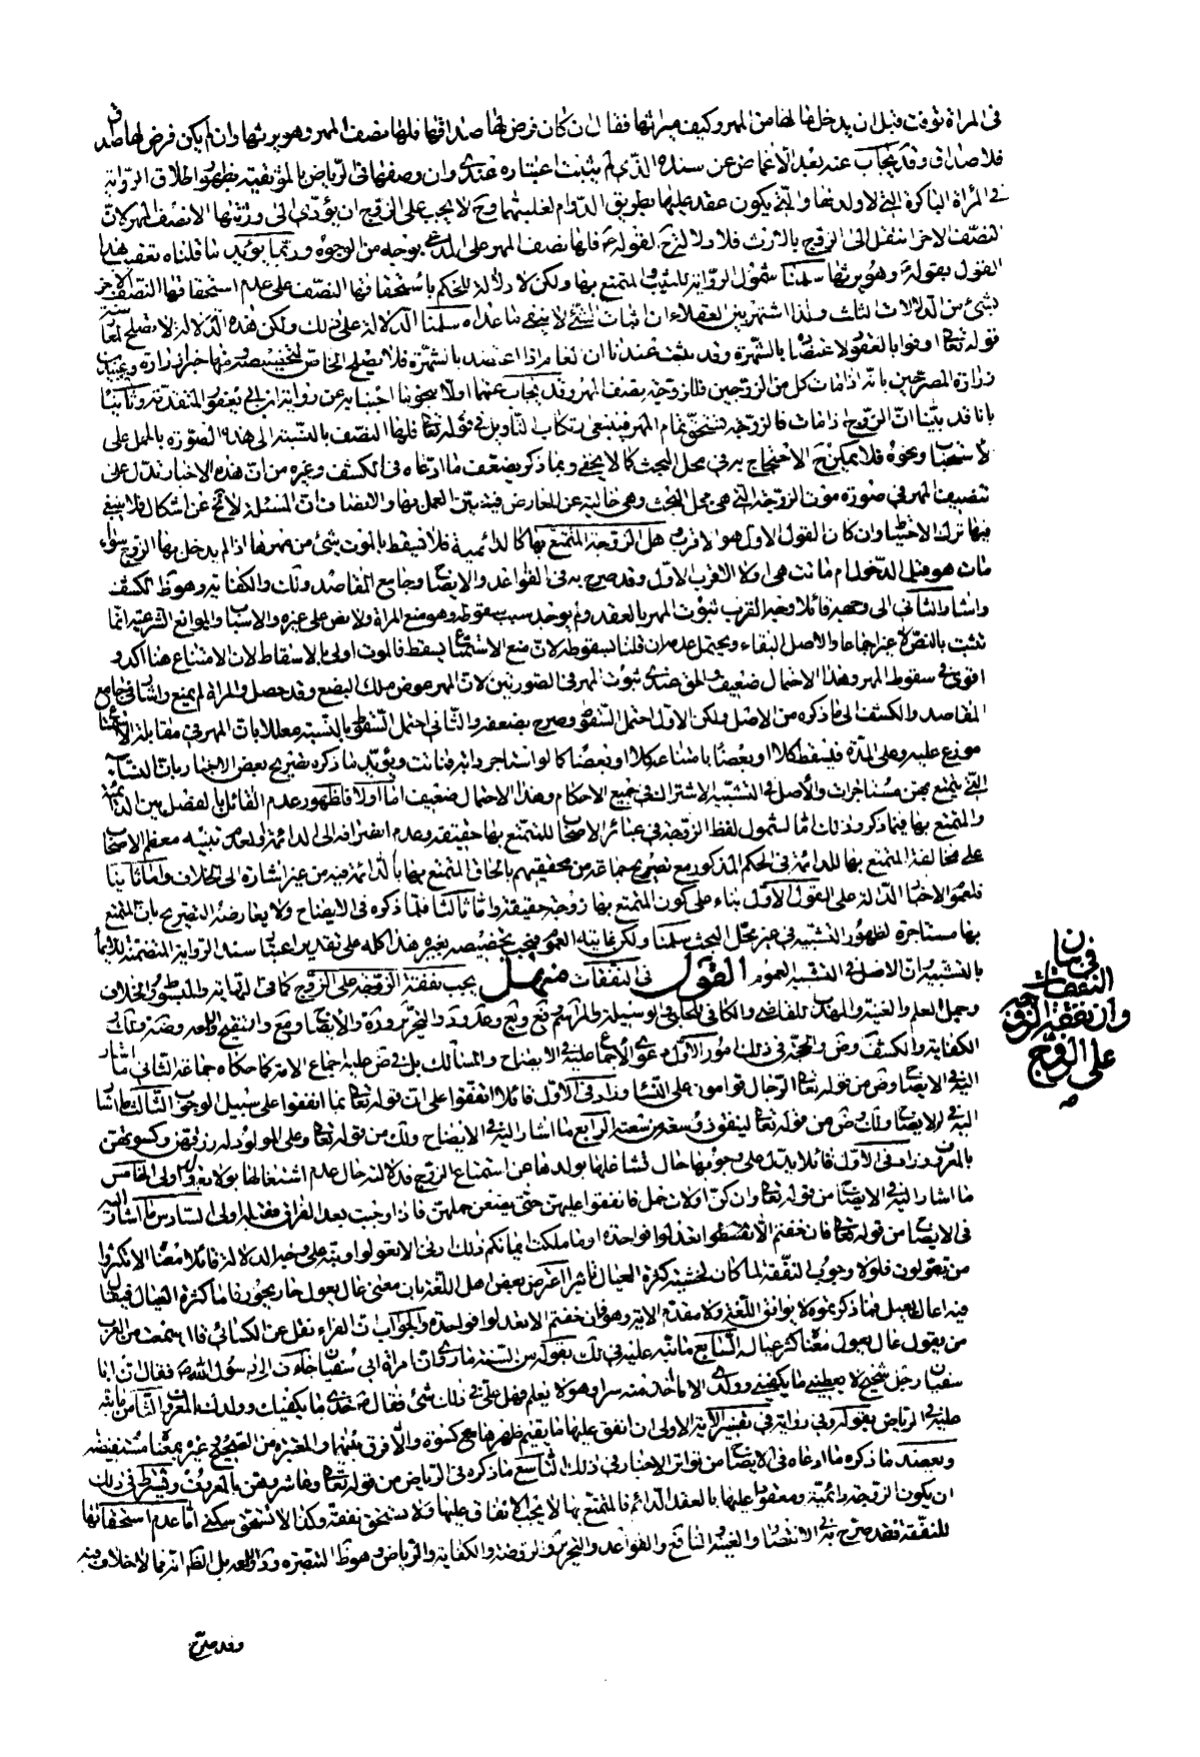 في المرأة توفيت قبل ان يدخل بها لها من المهر وكيف ميراثها فقال ان كان فرض لها صداقها فلها نصف المهر وهو يرثها وان لم يكن فرض لها صداق
فلا صداق وقد يجاب عنه بعد الاغماض عن سنده الذي لم يثبت اعتباره عندي وان وصفها في الرياض بالموثقية بظهور اطلاق الرواية
في المرأة الباكرة التي لا ولد لها والتي يكون عقد عليها بطريق الدوام لغلبتهما وح لا يجب على الزوج ان يؤدى الى ورثتها الا نصف المهر لان
النصف الاخر انتقل الى الزوج بالارث فلا دلالة لقوله ع فلها نصف المهر على المدعى بوجه من الوجوه وربما يؤيد ما قلناه تعقيب هذا
القول بقوله ع وهو يرثها سلمنا شمول الرواية للثيب والمتمتع بها ولكن لا دلالة للحكم باستحقاقها النصف على عدم استحقاقها النصف الاخر
بشئ من الدلالات الثلث ولذا اشتهر بين العقلاء ان اثبات الشئ لا ينفى ما عداه سلمنا الدلالة على ذلك ولكن هذه الدلالة لا تصلح لمعارضة
قوله تعالى اوفوا بالعقود لاعتضاده بالشهرة وقد ثبت عندنا ان العام اذا اعتضد بالشهرة فلا يصلح الخاص لتخصيصه ومنها خبرا زرارة وعبيد بن
زرارة المصرحين بانه اذا مات كل من الزوجين فللزوجة نصف المهر وقد يجاب عنهما اولا بنحو ما اجبنا به عن رواية ابن ابى يعفور المتقدمة وثانيا
بانا قد بينا ان الزوج اذا مات فالزوجة تستحق تمام المهر فينبغي ارتكاب التاويل في قوله فلها النصف بالنسبة الى هذه الصورة بالحمل على
الاستحباب ونحوه فلا يمكن ح الاحتجاج به في محل البحث كما لا يخفى وبما ذكر يضعف ما ادعاه في الكشف وغيره من ان هذه الاخبار تدل على
تنصيف المهر في صورة موت الزوجة التي هي محل البحث وهي خالية عن المعارض فيتعين العمل بها والانصاف ان المسئلة لا تخ عن اشكال فلا ينبغي
فيها ترك الاحتياط وان كان القول الاول هو الاقرب هل الزوجة المتمتع بها كالدائمية فلا يسقط بالموت شئ من مهرها اذا لم يدخل بها الزوج سواء
مات هو قبل الدخول ام ماتت هي او لا الاقرب الاول وقد صرح به في القواعد والايضاح وجامع المقاصد ولك والكفاية وهو ظ الكشف
واشار الثاني الى وجهه قائلا وجه القرب ثبوت المهر بالعقد ولم يوجد سبب سقوطه وهو منع المرأة ولا نص على غيره والاسباب والموانع الشرعية انما
تثبت بالنص لا غير اجماعا والاصل البقاء ويحتمل عدمه ان قلنا بسقوطه لان منع الاستمتاع يسقط فالموت اولى بالاسقاط لان الامتناع هنا اكد و
اقوى في سقوط المهر وهذا الاحتمال ضعيف والحق عندي ثبوت المهر في الصورتين لان المهر عوض ملك البضع وقد حصل والمرأة لم يمنع واشار في جامع
المقاصد والكشف الى ما ذكره من الاصل ولكن الاول احتمل السقوط وصرح بضعفه والثاني احتمل التسقيط بالنسبة معللا بان المهر في مقابلة الاستمتاع
موزع عليه وعلى المدة فيسقط كلا او بعضا بامتناعه كلا او بعضا كما لو استاجر دابة فماتت ويؤيد ما ذكره تصريح بعض الاخبار بان النساء
التي يتمتع بهن مستاجرات والاصل في التشبيه الاشتراك في جميع الاحكام وهذا الاحتمال ضعيف اما اولا فلظهور عدم القائل بالفصل بين الدائمية
والمتمتع بها فيما ذكر وذلك اما لشمول لفظ الزوجة في عبائر الاصحاب للمتمتع بها حقيقة وعدم انصرافه الى الدائمة او لعدم تنبيه معظم الاصحاب
على مخالفة المتمتع بها للدائمة في الحكم المذكور مع تصريح جماعة من محققيهم بالحاق المتمتع بها بالدائمة فيه من غير اشارة الى الخلاف واما ثانيا
فلعموم الاخبار الدالة على القول الاول بناء على كون المتمتع بها زوجة حقيقة واما ثالثا فلما ذكره في الايضاح ولا يعارضه التصريح بان المتمتع
بها مستاجرة لظهور التشبيه في غير محل البحث سلمنا ولكن غايته العموم فيجب تخصيصه بغيره هذا كله على تقدير اعتبار سند الرواية المتضمنة للدلالة
بالتشبيه وان الاصل في التشبيه العموم القول في النفقات منهل يجب نفقة الزوجة على الزوج كما في النهاية والمبسوط والخلاف
وجمل العلم والغنية والمهذب للقاضي والكافي للحلبي والوسيلة والمراسم وفع ويع وعد ود والتحرير ورة والايضاح ومع والتنقيح واللمعة وضة وغاية
الكفاية والكشف وض والحجة في ذلك امور الاول دعوى الاجماع عليه في الايضاح والمسالك بل في ض عليه اجماع الامة كما حكاه جماعة الثاني ما اشار
اليه في الايضاح وض من قوله تعالى الرجال قوامون على النساء وزاد في الاول قائلا اتفقوا على ان قوله تعالى بما انفقوا على سبيل الوجوب الثالث ما اشار
اليه في الايضاح ولك وض من قوله تعالى لينفق ذو سعة من سعته الرابع ما اشار اليه في الايضاح ولك من قوله تعالى وعلى المولود له رزقهن وكسوتهن
بالمعروف وزاد في الاول قائلا يدل على وجوبها حال تشاغلها بولدها عن استمتاع الزوج فدلالته حال عدم اشتغالها بولا بغيره اولى الخامس
ما اشار اليه في الايضاح من قوله تعالى وان كن اولات حمل فانفقوا عليهن حتى يضعن حملهن فاذا وجبت بعد الفراق فقبله اولى السادس ما اشار اليه
في الايضاح من قوله تعالى فان خفتم الا تقسطوا تعدلوا فواحدة او ما ملكت ايمانكم ذلك ادنى الا تعولوا ونبه على وجه الدلالة قائلا معناه الا تكثروا
من تعولون فلولا وجوب النفقة لما كان لخشيته كثرة العيال تاثير اعترض بعض اهل اللغة بان معنى عال يعول جار يجور فاما كثرة العيال فيقال
فيه اعال يعيل فما ذكرتموه لا يوافق اللغة ولا مقدم الاية وهو فان خفتم الا تعدلوا فواحدة والجواب ان الفراء نقل عن الكسائي قال سمعت من العرب
من يقول عال يعول معناه كثر عياله السابع ما نبه عليه في لك بقوله من السنة ما روى ان امرأة ابى سفيان جاءت الى رسول الله ص فقالت ان ابا
سفيان رجل شحيح لا يعطيني ما يكفيني وولدي الا ما أخذ منه سرا وهو لا يعلم فهل على في ذلك شئ فقال ص خذي ما يكفيك وولدك بالمعروف الثامن ما نبه
عليه في الرياض بقوله وفي رواية في تفسير الآية الاولى ان انفق عليها ما يقيم ظهرها مع كسوة والا فرق بينهما والمعتبرة من الصحيح وغيره بمعناه مستفيضة
ويعضد ما ذكره ما ادعاه في الايضاح من تواتر الاخبار في ذلك التاسع ما ذكره في الرياض من قوله تعالى وعاشروهن بالمعروف ويشترط في ذلك
ان يكون الزوجة دائمية ومعقودا عليها بالعقد الدائم فالمتمتع بها لا يجب الانفاق عليها ولا تستحق نفقة وكذا لا تستحق سكنى اما عدم استحقاقها
للنفقة فقد صرح به في الانتصار والغنية والنافع والقواعد والتحرير والروضة والكفاية والرياض وهو ظ التبصرة ود واللمعة بل الظ انه مما لا خلاف فيه
وقد صرح
في بيان
النفقات
وان نفقة الزوجة
على الزوج